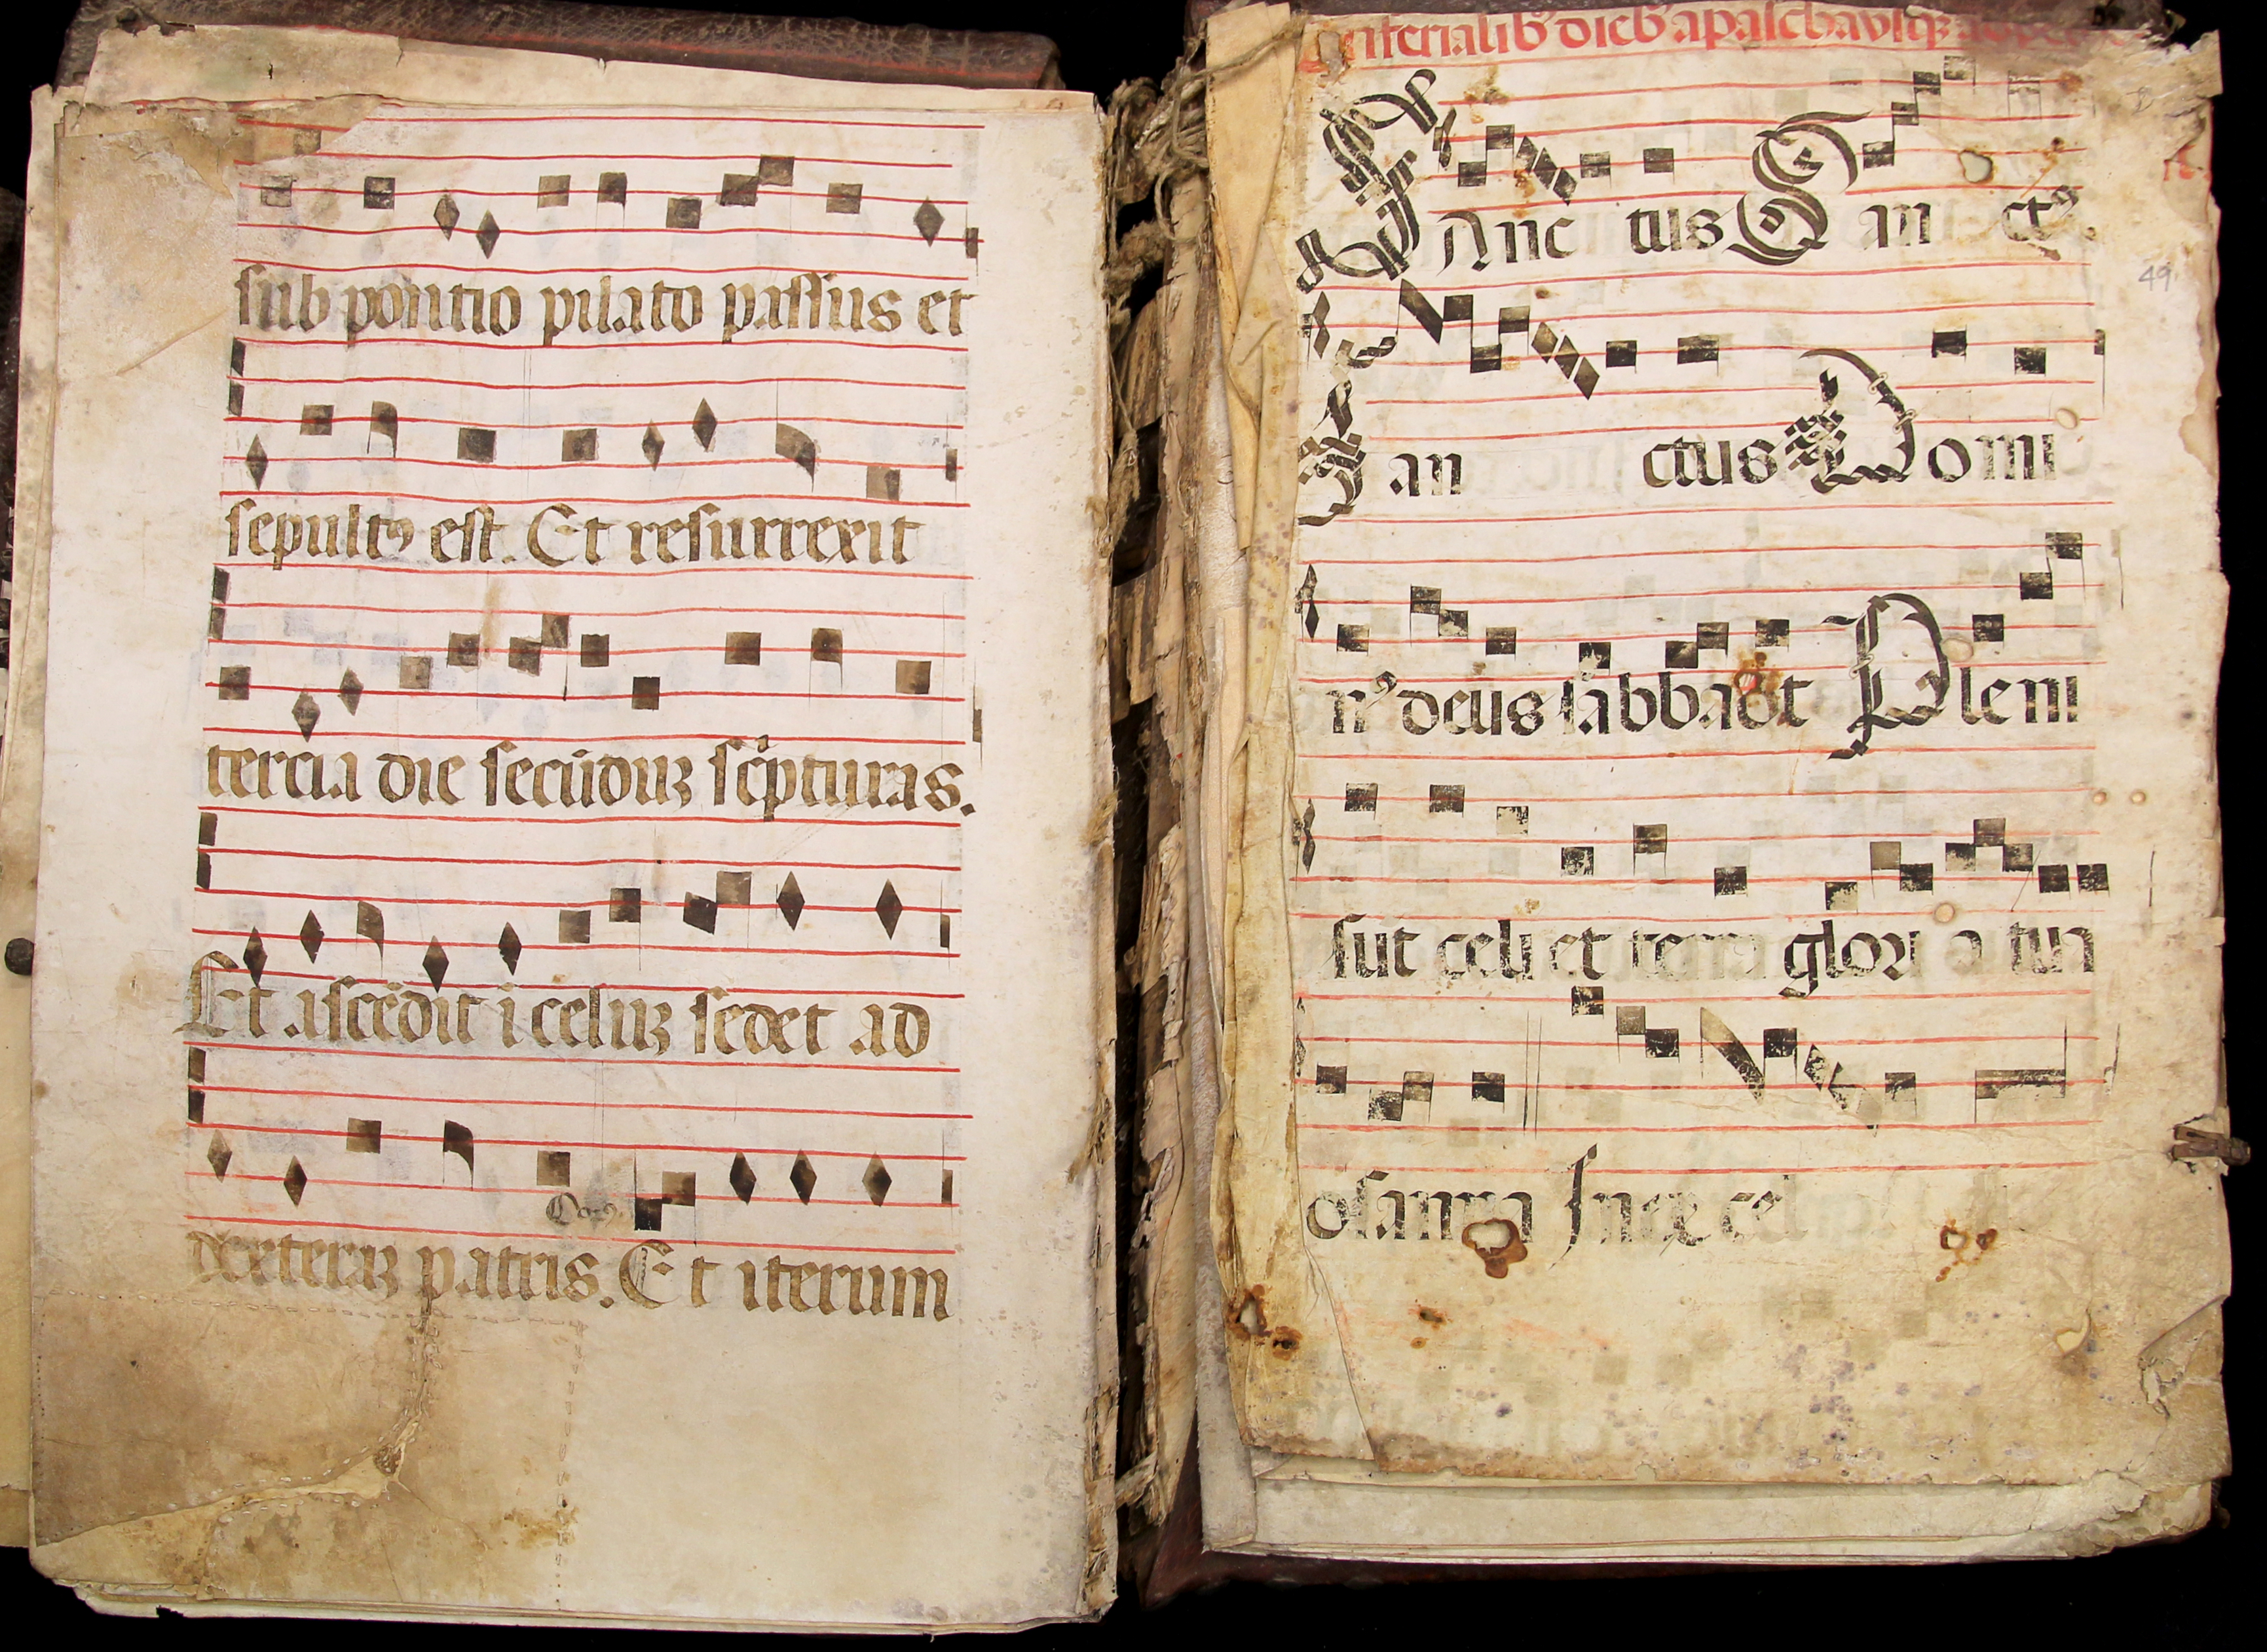 sub pontio pilato passus et
sepultꝯ est. Et resurrexit
tercia die secūduꝫ scͥpturas.
Et ascēdit i celuꝫ sedet ad
Corꝯ.
dexteraꝫ patris. Et iterum
ferialibꝯ diebꝯ a pascha vsqꝫ
SAnc tus San ctꝯ
49
San ctus Domi
nꝯ deus sabbaot Pleni
sūt celi et terra glori a tua
osanna In excel